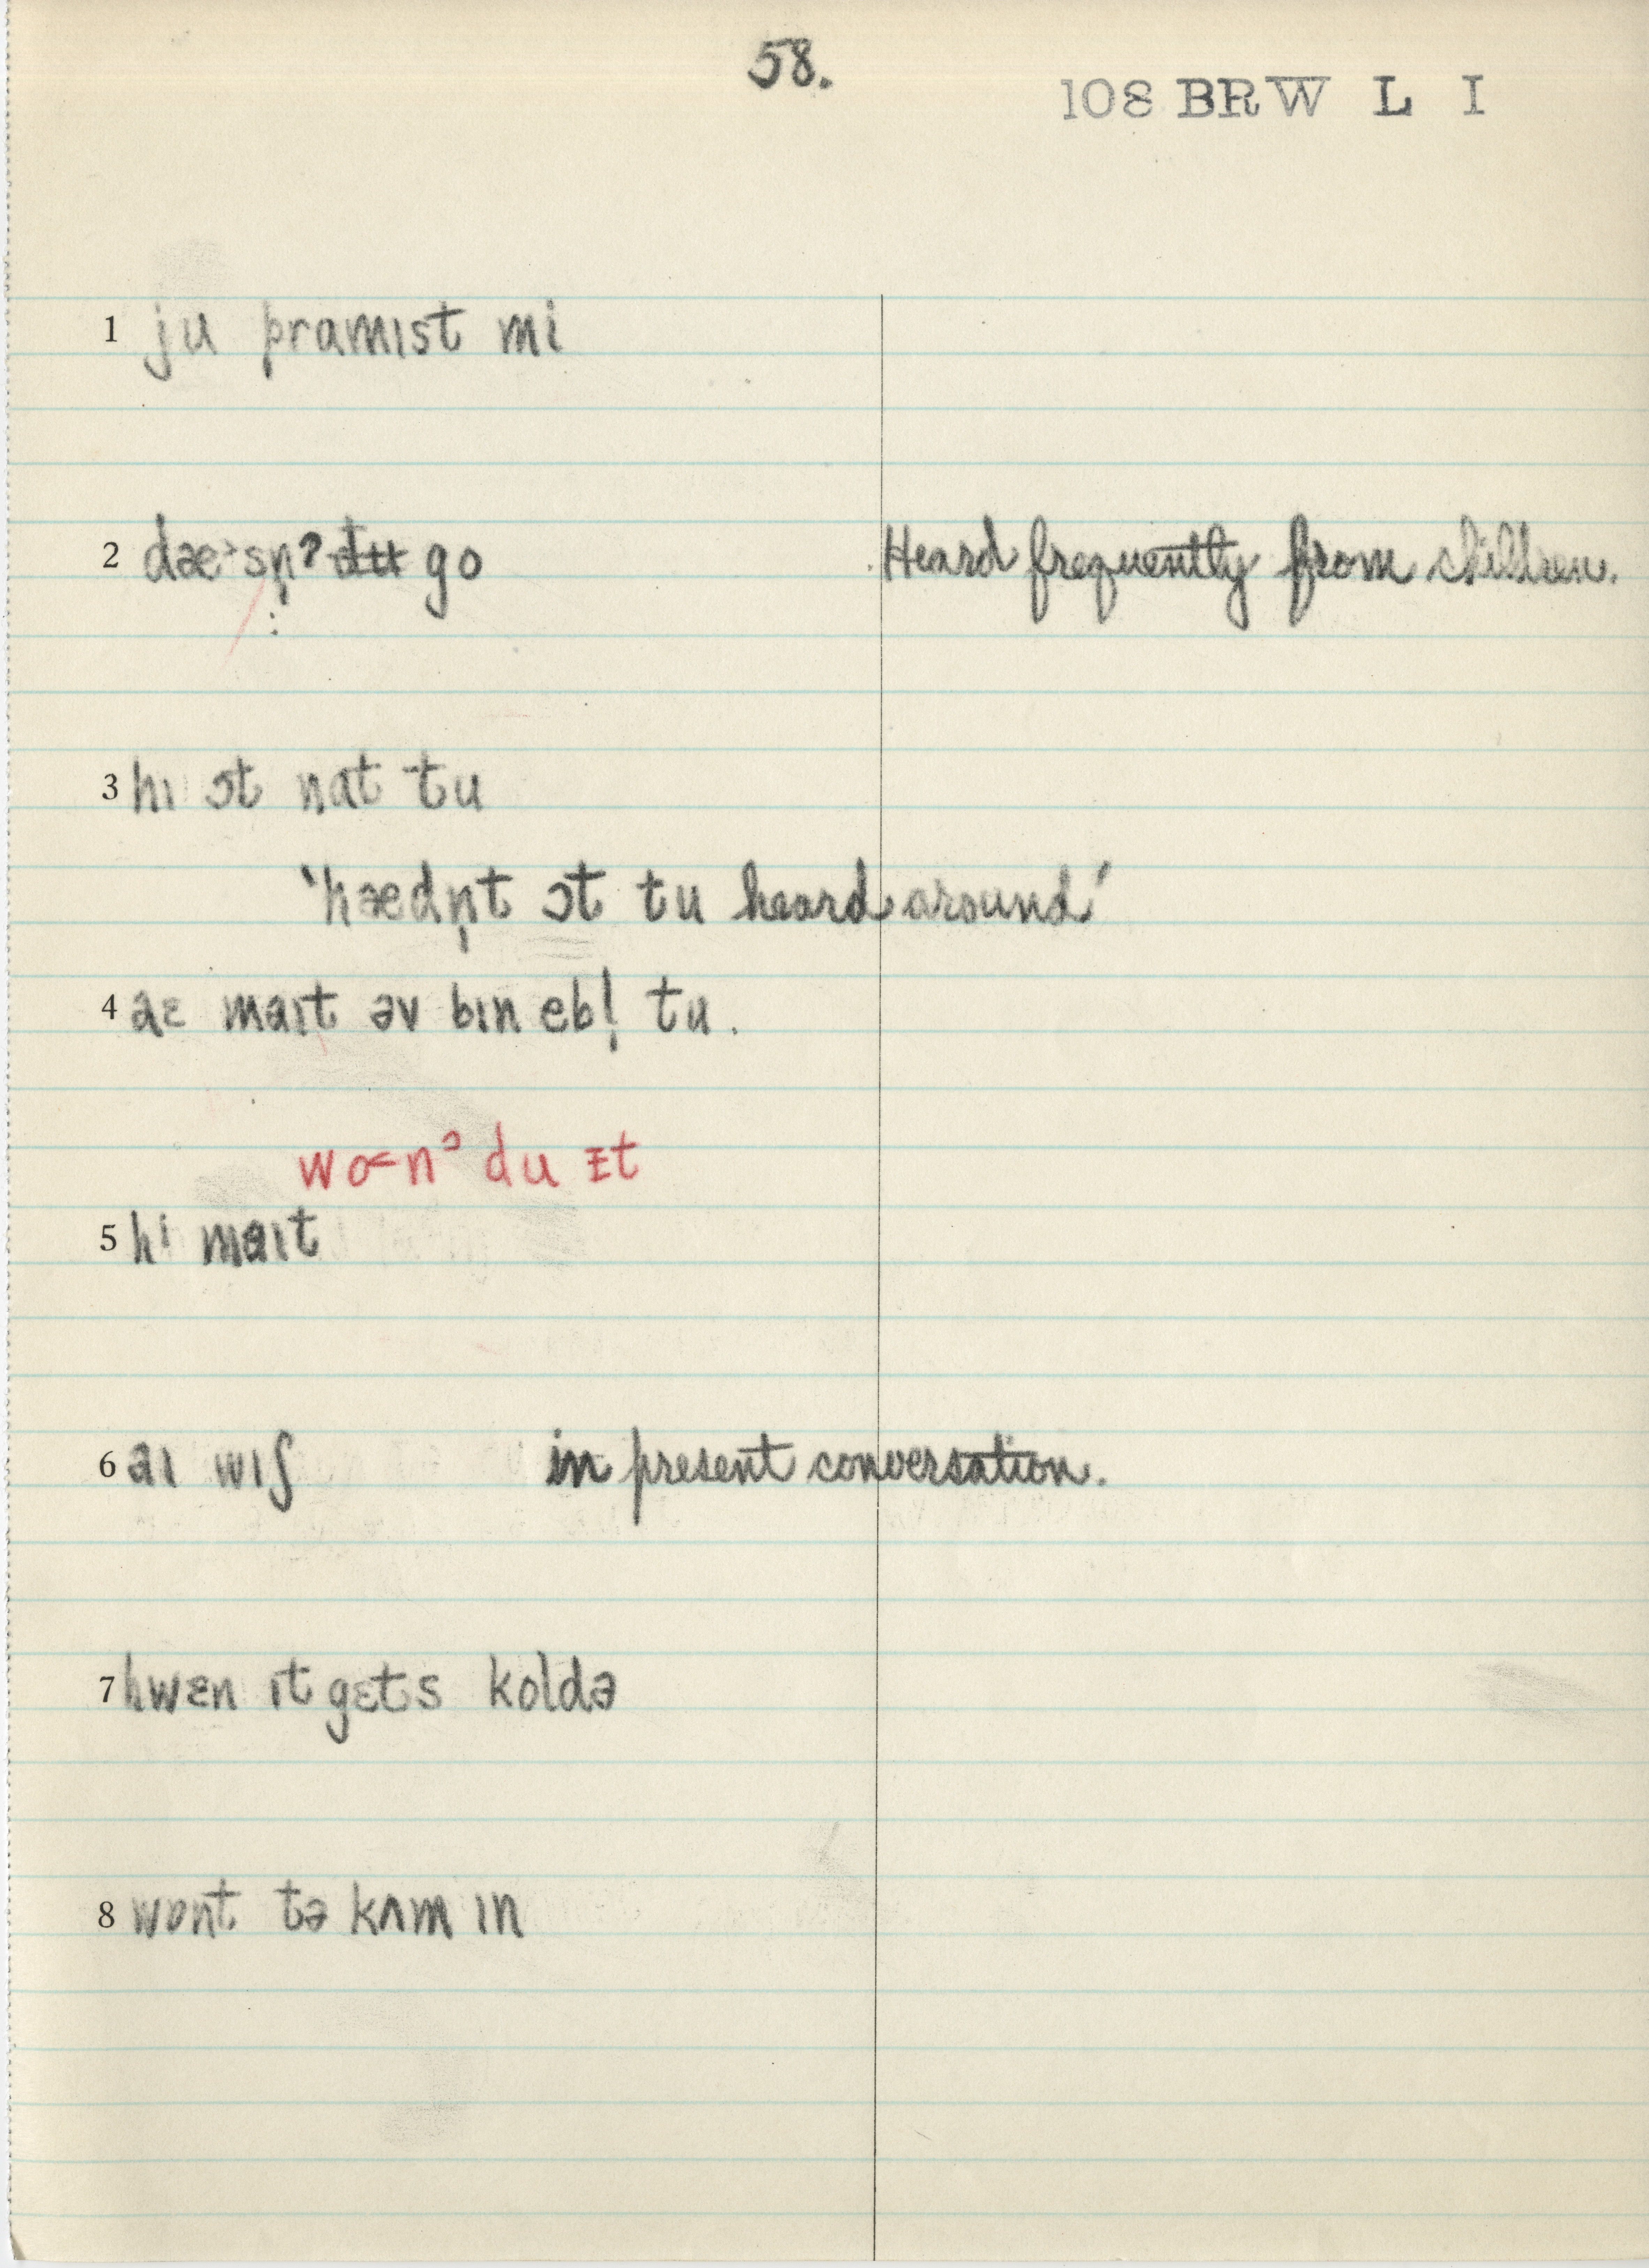 58.
108 BRW L I
1 ju pramɪst mi
2 dæ˃sn̩ˀ ~~du~~ go Heard frequently from children.
3 hɪ ɔt nat tu
'hædn̩t ɔt tu heard around'
4 aɛ maɪt əv bɪn ebl̩ tu.
wo˂nˀ du ɪt
5 hi maɪt
6 aɪ wɪʃ in present conversation.
7 hwɛn ɪt gɛts koldə
8 wɒnt tə kʌm ɪn